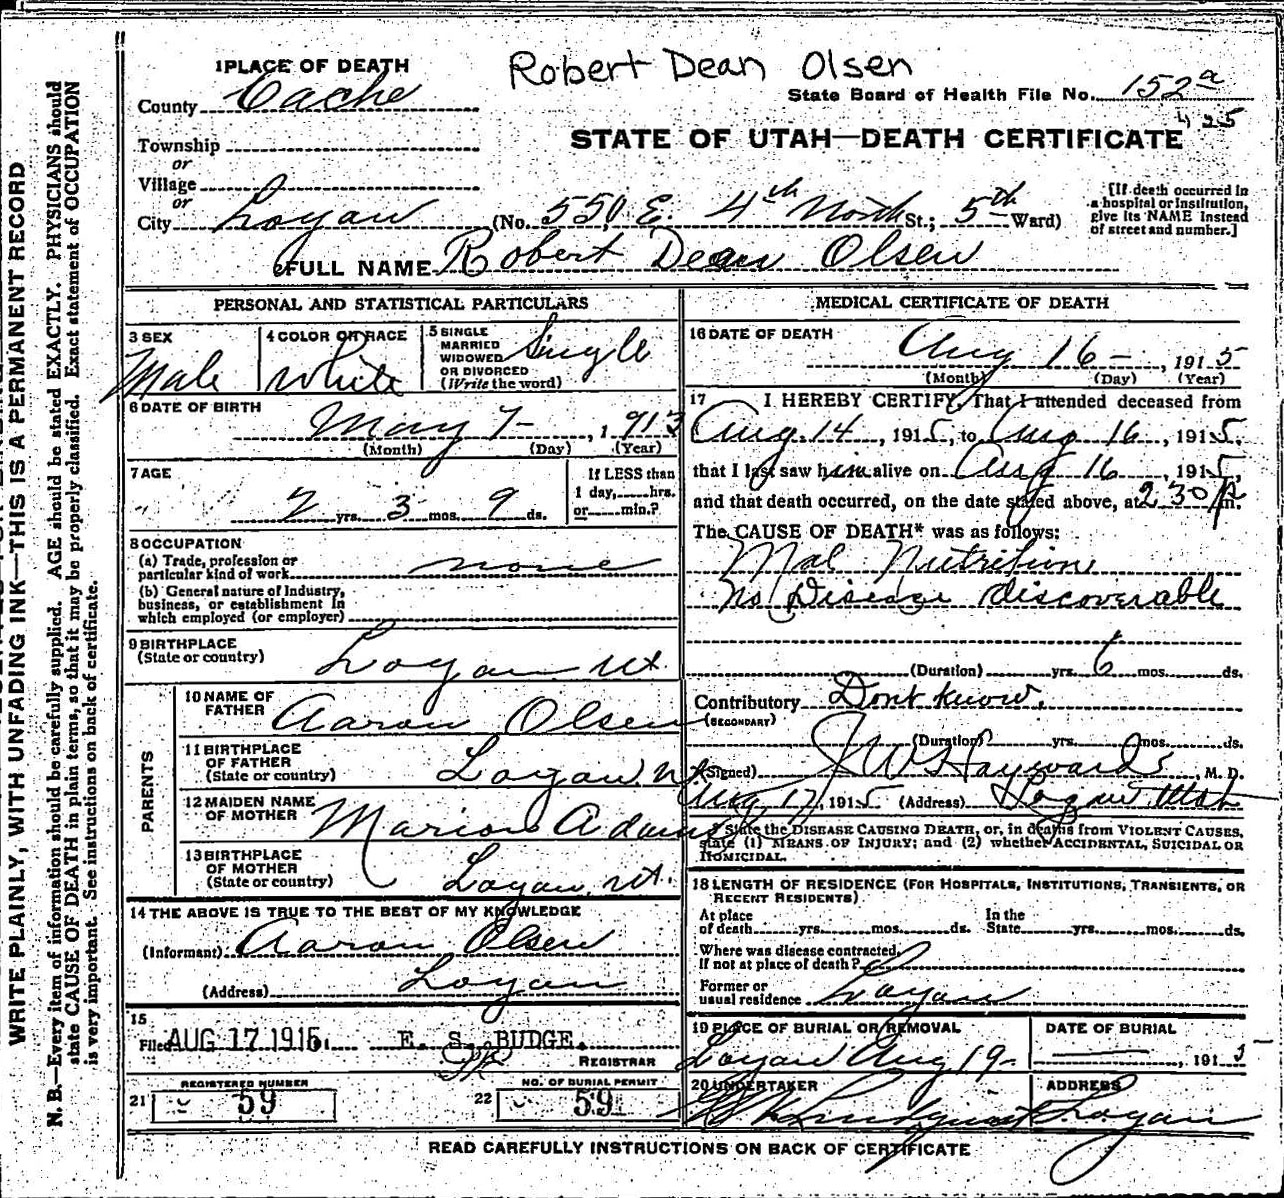 Robert Dean Olsen
1 PLACE OF DEATH
County Cache
State Board of Health File No. 152 a
25
Township
or
Village
or
City Logan (No. 550, E. 4th North St.; 5th Ward)
STATE OF UTAH—DEATH CERTIFICATE
[If death occurred in
a hospital or institution,
give its NAME instead
of street and number.]
2 FULL NAME Robert Dean Olsen
PERSONAL AND STATISTICAL PARTICULARS
3 SEX
Male
4 COLOR OR RACE
White
5 SINGLE
MARRIED
WIDOWED
OR DIVORCED
(Write the word)
Single
6 DATE OF BIRTH
May 7 - , 1913
(Month) (Day) (Year)
7 AGE
2 yrs. 3 mos. 9 ds.
If LESS than
1 day,......hrs.
or......min.?
8 OCCUPATION
(a) Trade, profession or
particular kind of work none
(b) General nature of Industry,
business, or establishment in
which employed (or employer)
9 BIRTHPLACE
(State or country) Logan Ut.
PARENTS
10 NAME OF
FATHER Aaron Olsen
11 BIRTHPLACE
OF FATHER
(State or country) Logan, Ut
12 MAIDEN NAME
OF MOTHER Marion Adams
13 BIRTHPLACE
OF MOTHER
(State or country) Logan, Ut.
14 THE ABOVE IS TRUE TO THE BEST OF MY KNOWLEDGE
(Informant) Aaron Olsen
(Address) Logan
15
Filed AUG 17 1915. E. S. BUDGE.
REGISTRAR
21 REGISTERED NUMBER
59
22 NO. OF BURIAL PERMIT
59
MEDICAL CERTIFICATE OF DEATH
16 DATE OF DEATH
Aug 16 - , 1915
(Month) (Day) (Year)
17 I HEREBY CERTIFY, That I attended deceased from
Aug. 14, 1915, to Aug 16, 1915.
that I last saw him alive on Aug 16, 1915,
and that death occurred, on the date stated above, at 2 30 p m.
The CAUSE OF DEATH* was as follows:
Mal Nutrition
No Disease discoverable
(Duration) yrs. 6 mos. ds.
Contributory Dont know.
(SECONDARY)
(Duration) yrs. mos. ds.
(Signed) J W Hayward, M. D.
Aug 17, 1915 (Address) Logan Utah
* State the DISEASE CAUSING DEATH, or, in deaths from VIOLENT CAUSES,
state (1) MEANS OF INJURY; and (2) whether ACCIDENTAL, SUICIDAL OR
HOMICIDAL.
18 LENGTH OF RESIDENCE (FOR HOSPITALS, INSTITUTIONS, TRANSIENTS, OR
RECENT RESIDENTS)
At place
of death yrs. mos. ds.
In the
State yrs. mos. ds.
Where was disease contracted,
If not at place of death?
Former or
usual residence Logan
19 PLACE OF BURIAL OR REMOVAL
Logan Aug 19-
DATE OF BURIAL
, 1915
20 UNDERTAKER
Lindquist
ADDRESS
Logan
READ CAREFULLY INSTRUCTIONS ON BACK OF CERTIFICATE
WRITE PLAINLY, WITH UNFADING INK—THIS IS A PERMANENT RECORD
N. B.—Every item of information should be carefully supplied. AGE should be stated EXACTLY. PHYSICIANS should
state CAUSE OF DEATH in plain terms, so that it may be properly classified. Exact statement of OCCUPATION
is very important. See instructions on back of certificate.